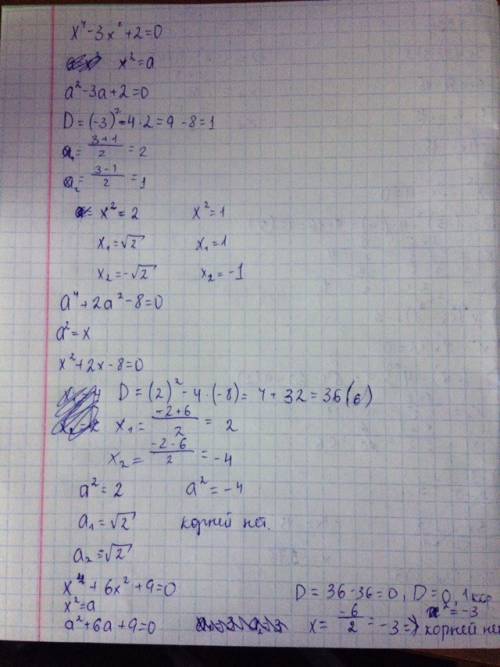 x⁴-3x²+2=0
x²=a
a²-3a+2=0
D=(-3)²-4·2=9-8=1
a₁=\frac{3+1}{2}=2
a₂=\frac{3-1}{2}=1
x²=2 x²=1
x₁=√2 x₁=1
x₂=-√2 x₂=-1
a⁴+2a²-8=0
a²=x
x²+2x-8=0
D=(2)²-4·(-8)=4+32=36(6)
x₁=\frac{-2+6}{2}=2
x₂=\frac{-2-6}{2}=-4
a²=2 a²=-4
a₁=√2 корней нет.
a₂=√2
x⁴+6x²+9=0 D=36-36=0, D=0, 1 кор
x²=a x²=-3
a²+6a+9=0 x=\frac{-6}{2}=-3=> корней нет